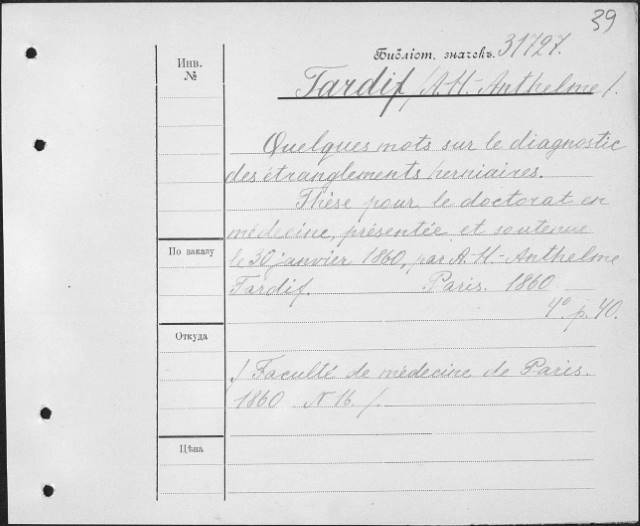 39
Инв.
№
Библіот. значекъ. 31727.
Tardif /A.H.-Anthelme/.
Quelques mots sur le diagnostic
des étranglements herniaires.
Thèse pour le doctorat en
médecine, présentée et soutenue
По заказу
le 30 janvier 1860, par A.H.-Anthelme
Tardif. Paris. 1860
4° p. 40.
Откуда
/ Faculté de médecine de Paris.
1860 N 16. /.
Цѣна